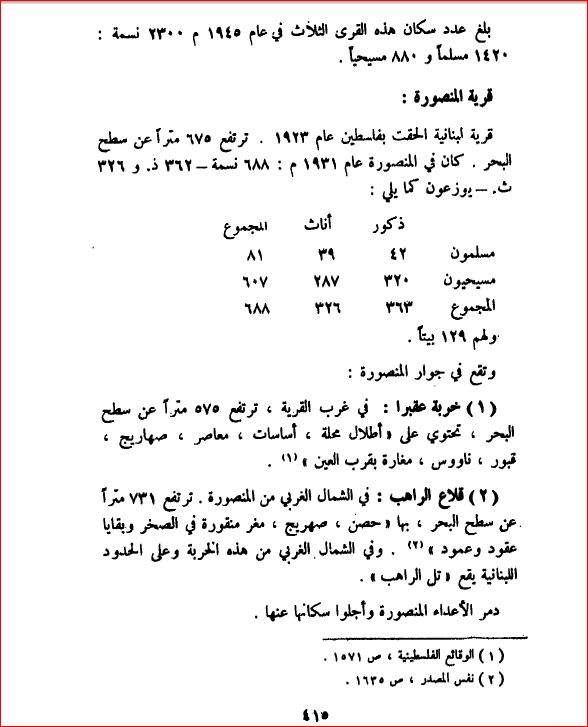 بلغ عدد سكان هذه القرى الثلاث في عام ١٩٤٥ م ٢٣٠٠ نسمة :
١٤٢٠ مسلماً و ٨٨٠ مسيحياً .
قرية المنصورة :
قرية لبنانية الحقت بفلسطين عام ١٩٢٣ . ترتفع ٦٧٥ متراً عن سطح
البحر . كان في المنصورة عام ١٩٣١ م : ٦٨٨ نسمة – ٣٦٢ ذ. و ٣٢٦
ث. – يوزعون كما يلي :
ذكور أناث المجموع
مسلمون ٤٢ ٣٩ ٨١
مسيحيون ٣٢٠ ٢٨٧ ٦٠٧
المجموع ٣٦٣ ٣٢٦ ٦٨٨
ولهم ١٢٩ بيتاً .
وتقع في جوار المنصورة :
(١) خربة عقبرا : في غرب القرية ، ترتفع ٥٧٥ متراً عن سطح
البحر ، تحتوي على « أطلال محلة ، أساسات ، معاصر ، صهاريج ،
قبور ، ناووس ، مغارة بقرب العين » (١) .
(٢) قلاع الراهب : في الشمال الغربي من المنصورة . ترتفع ٧٣١ متراً
عن سطح البحر ، بها « حصن ، صهريج ، مغر منقورة في الصخر وبقايا
عقود وعمود » (٢) . وفي الشمال الغربي من هذه الخربة وعلى الحدود
اللبنانية يقع « تل الراهب » .
دمر الأعداء المنصورة وأجلوا سكانها عنها .
(١) الوقائع الفلسطينية ، ص ١٥٧١ .
(٢) نفس المصدر ، ص ١٦٣٥ .
٤١٥